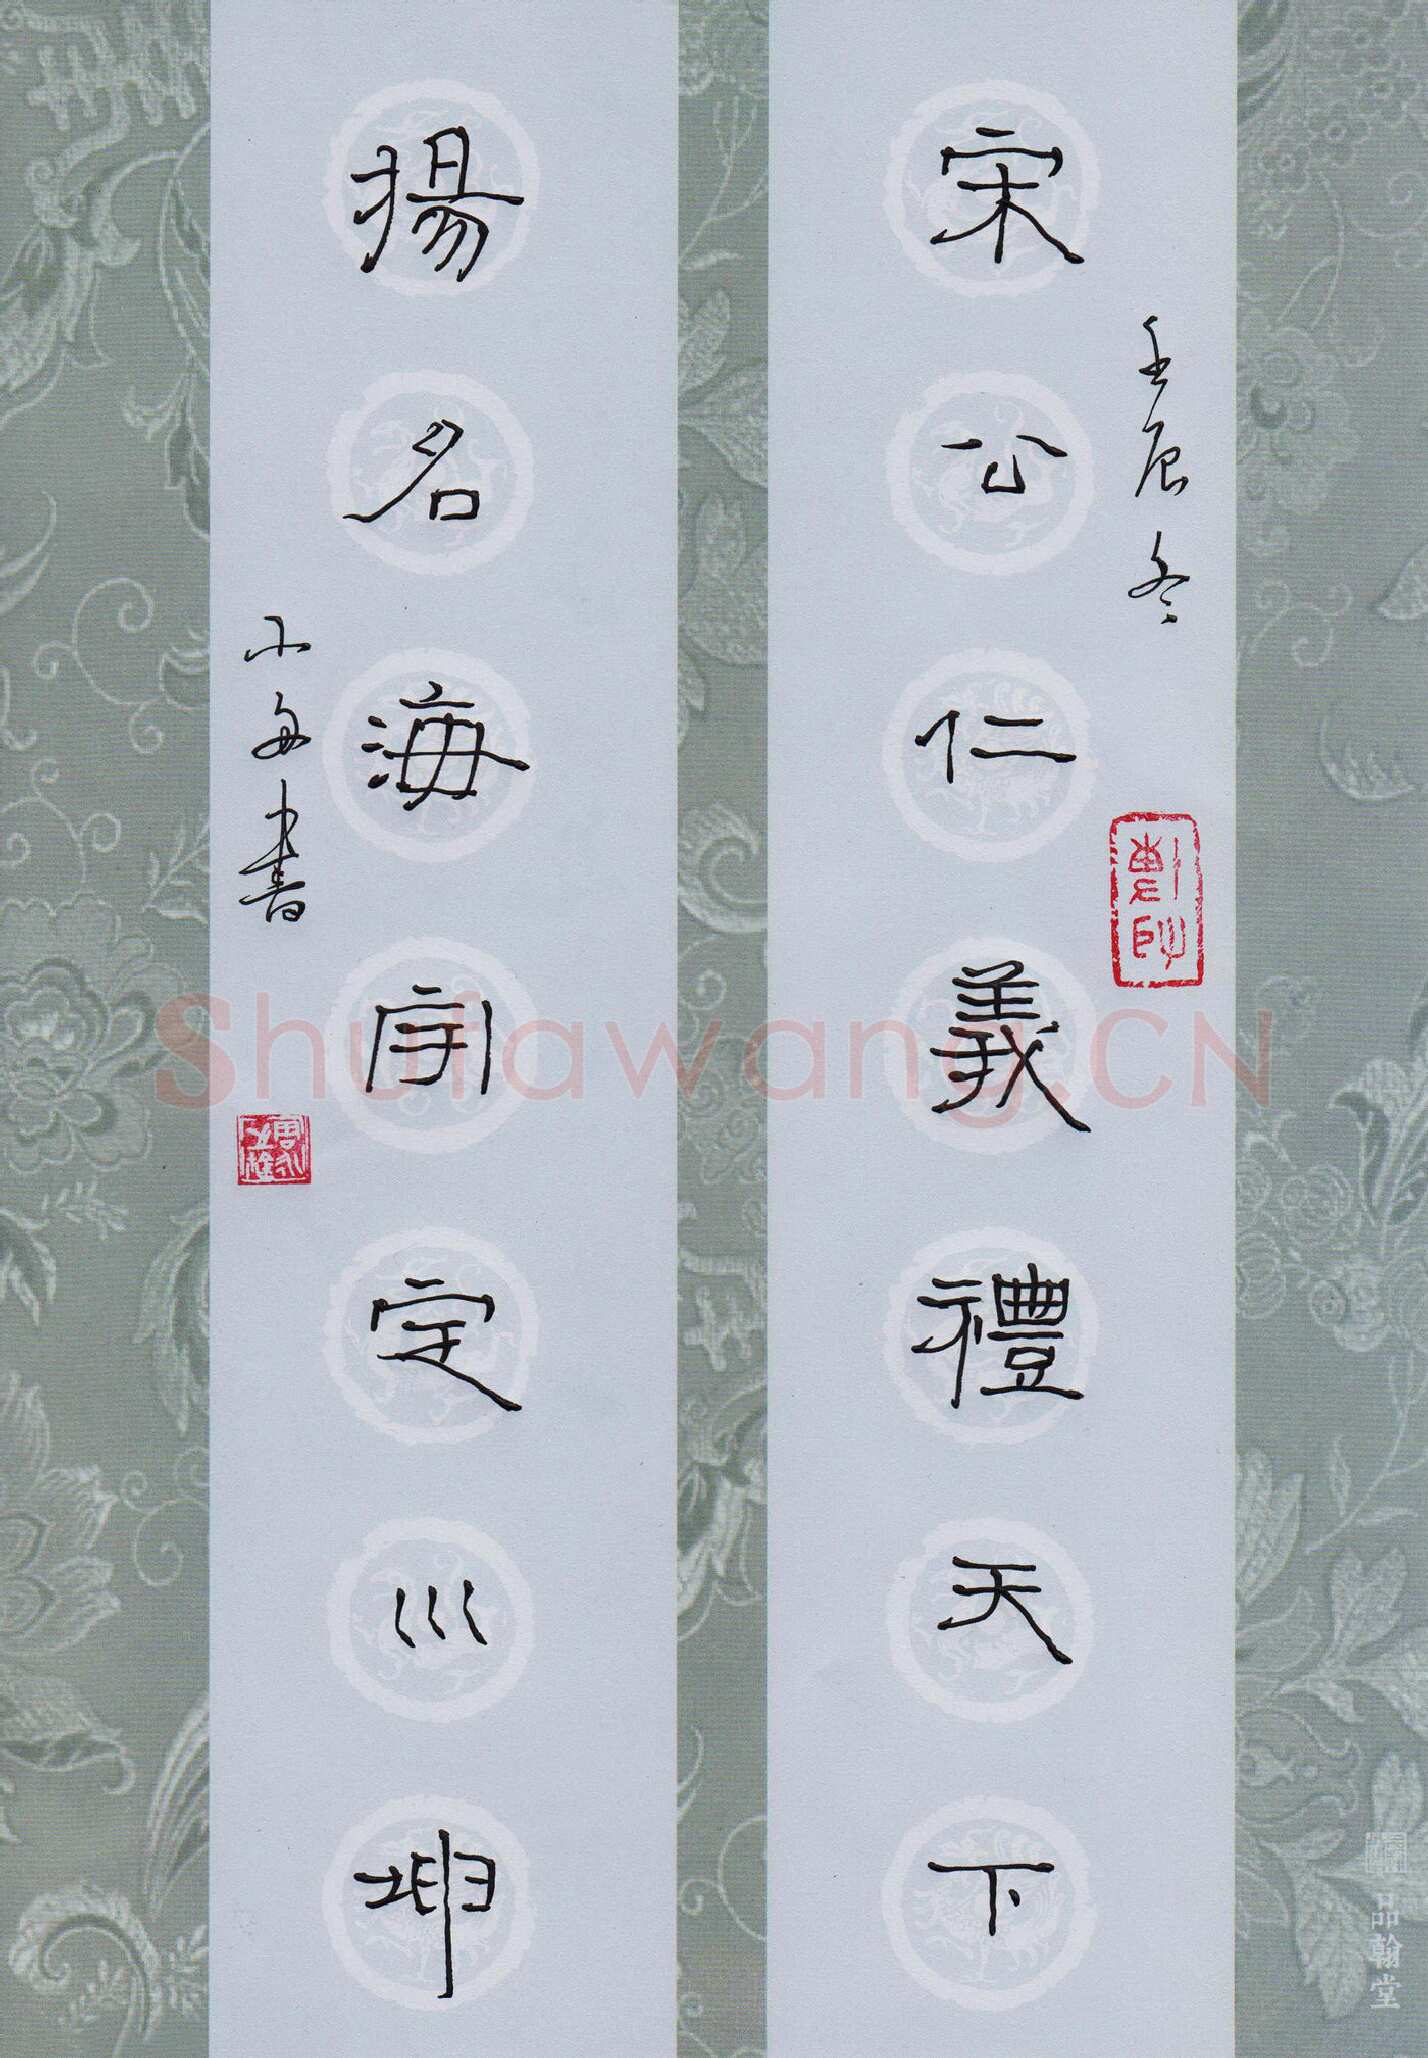 宋公仁義禮天下
壬辰冬
揚名海宇定巛坤
書
Shufawang.CN
品翰堂